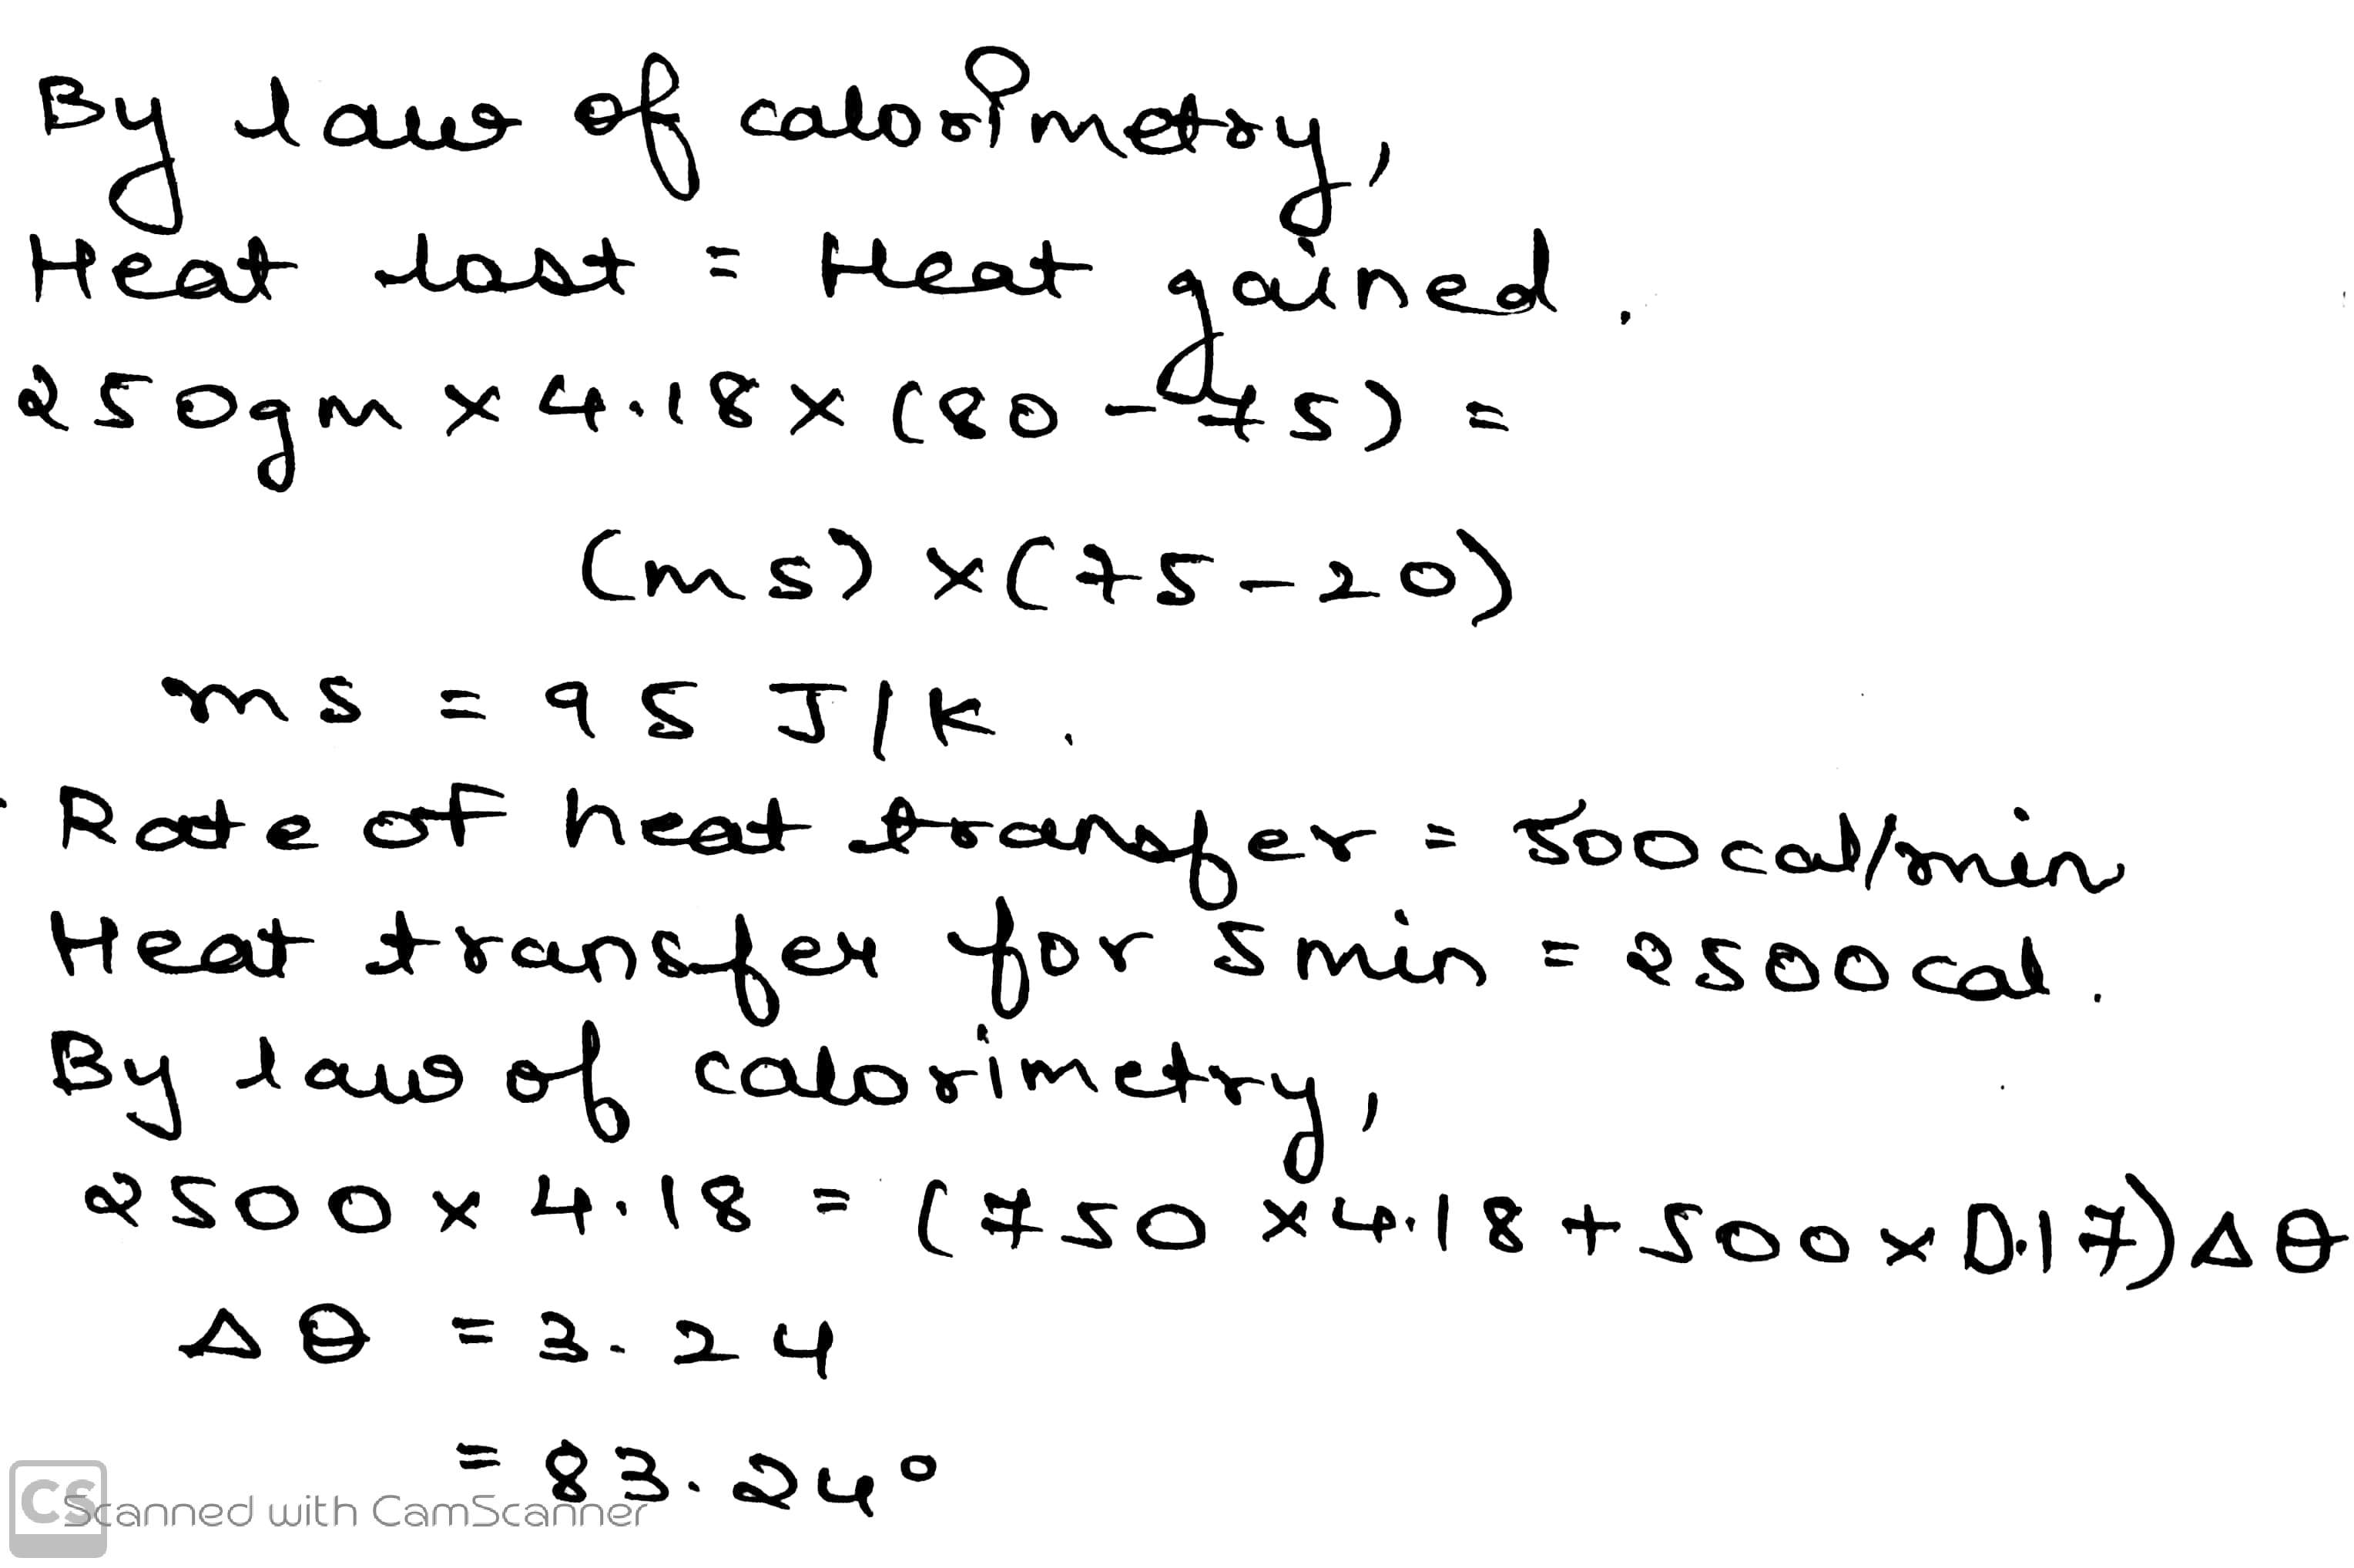 By law of calorimetry,
Heat lost = Heat gained.
250gm x 4.18 x (80 - 75) =
(ms) x (75 - 20)
ms = 95 J/K.
Rate of heat transfer = 500 cal/min
Heat transfer for 5 min = 2500 cal.
By law of calorimetry,
2500 x 4.18 = (750 x 4.18 + 500 x 0.17) Δθ
Δθ = 3.24
= 83.24°
CS Scanned with CamScanner